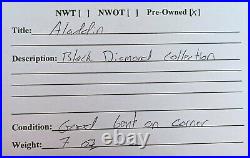 NWT [ ] NWOT [ ] Pre-Owned [X]
Title: Aladdin
Description: Black Diamond Collection
Condition: Good bent on corner
Weight: 7 oz